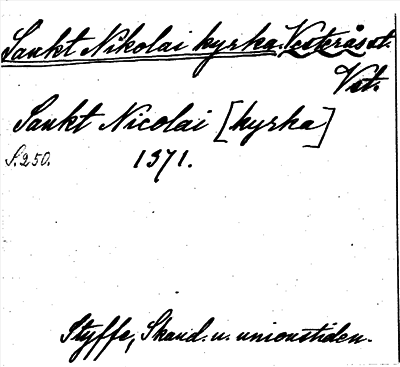 Sankt Nikolai kyrka. Vesterås st.
Vstm.
Sankt Nicolai [kyrka]
S. 250. 1371.
Styffe, Skand. u. unionstiden.